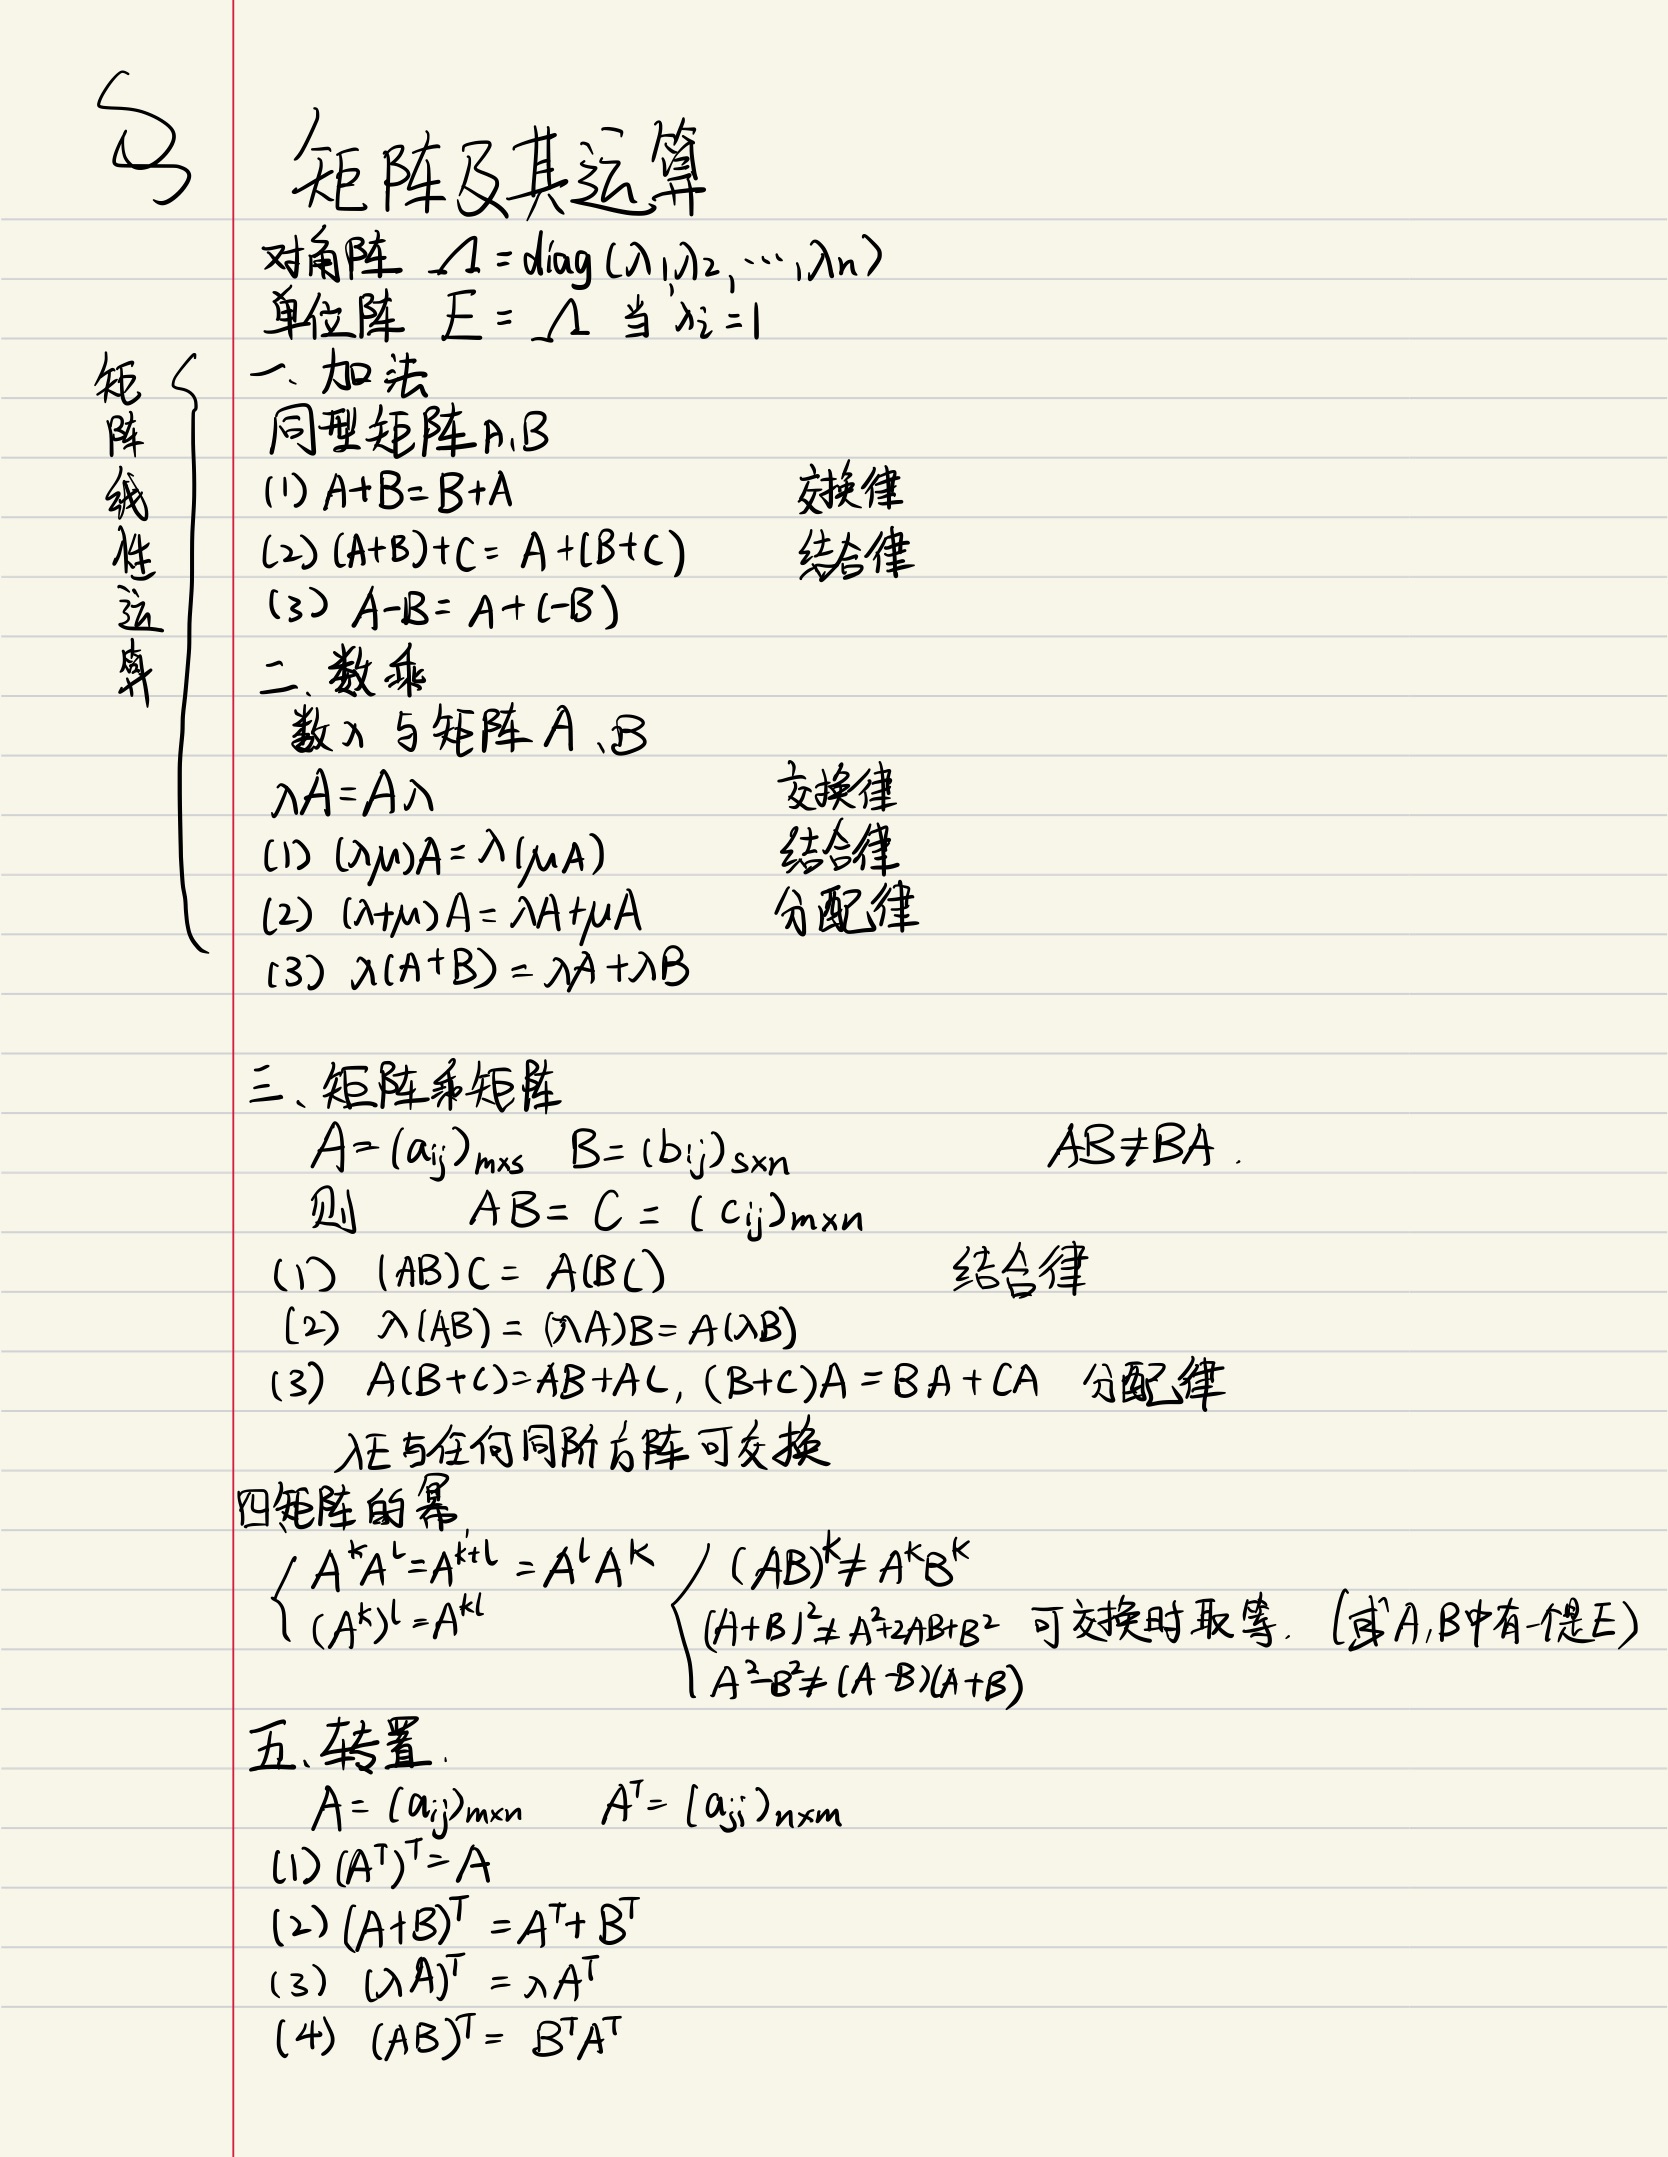 § 矩阵及其运算
对角阵 Λ=diag(λ1,λ2,…,λn)
单位阵 E=Λ 当 λi=1
矩阵线性运算
一、加法
同型矩阵A、B
(1) A+B=B+A 交换律
(2) (A+B)+C=A+(B+C) 结合律
(3) A-B=A+(-B)
二、数乘
数λ与矩阵A、B
λA=Aλ 交换律
(1) (λμ)A=λ(μA) 结合律
(2) (λ+μ)A=λA+μA 分配律
(3) λ(A+B)=λA+λB
三、矩阵乘矩阵
A=(aij)m×s B=(bij)s×n AB≠BA.
则 AB=C=(cij)m×n
(1) (AB)C=A(BC) 结合律
(2) λ(AB)=(λA)B=A(λB)
(3) A(B+C)=AB+AC, (B+C)A=BA+CA 分配律
λE与任何同阶方阵可交换
四矩阵的幂
A^kA^l=A^{k+l}=A^lA^k
(A^k)^l=A^{kl}
(AB)^k≠A^kB^k
(A+B)²≠A²+2AB+B² 可交换时取等. (或A,B中有一个是E)
A²-B²≠(A-B)(A+B)
五、转置.
A=(aij)m×n A^T=(aji)n×m
(1) (A^T)^T=A
(2) (A+B)^T=A^T+B^T
(3) (λA)^T=λA^T
(4) (AB)^T=B^TA^T